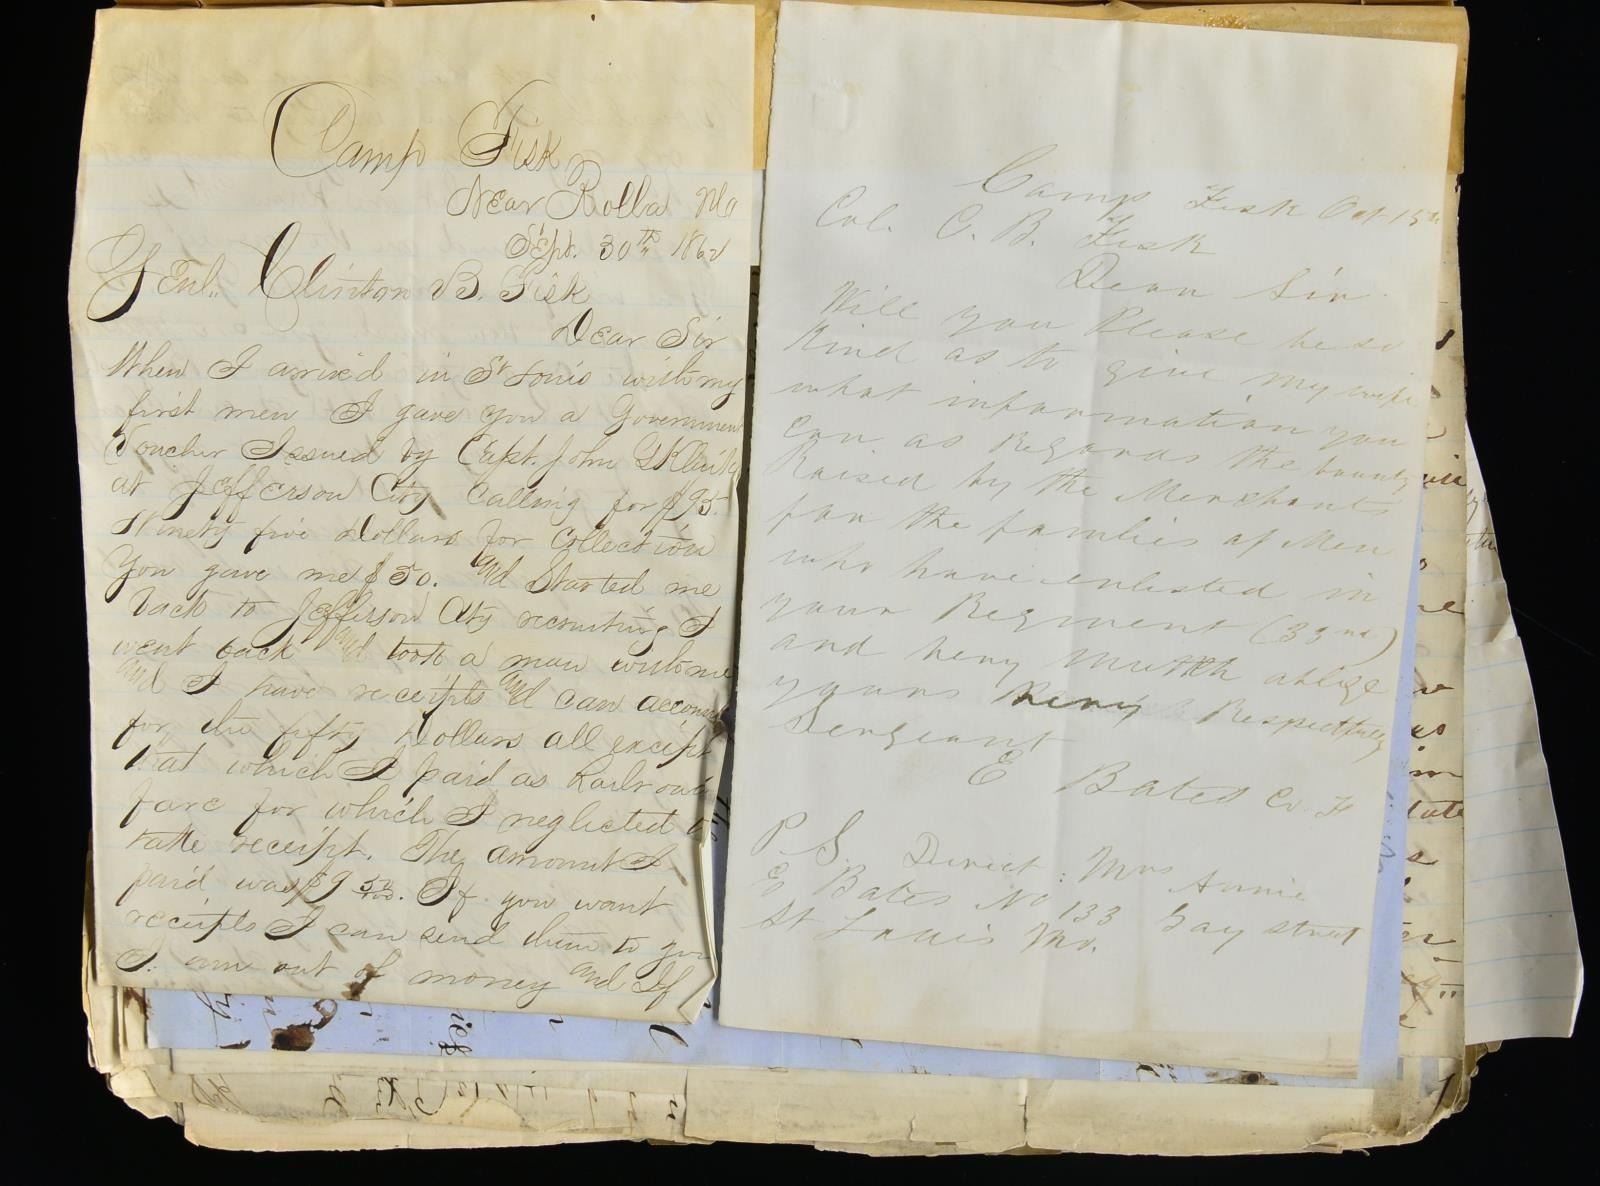 Camp Fisk
Near Rolla Mo
Sept. 30th 1862
Genl. Clinton B. Fisk
Dear Sir
When I arrived in St Louis with my
first men I gave you a Government
Voucher Issued by Capt. John G Klink
at Jefferson City calling for $95.
Ninety five Dollars for Collection
You gave me $50. and Started me
back to Jefferson City recruiting I
went back and took a man with me
and I have receipts and can account
for the fifty Dollars all except
that which I paid as Railroad
fare for which I neglected to
take receipt. The amount I
paid was $9 50/100. If you want
receipts I can send them to you
I am out of money and If
Camp Fisk Oct 15th
Col. C. B. Fisk
Dear Sir
Will you Please be so
Kind as to give my wife
what information you
can as Regards the bounty
Raised by the Merchants
for the families of Men
who have enlisted in
your Regiment (33nd)
and very Mutch oblige
yours Very Respectfully
Sergeant
E Bates Co. F
P. S. Direct: Mrs Annie
E Bates No 133 Gay street
St Louis Mo.